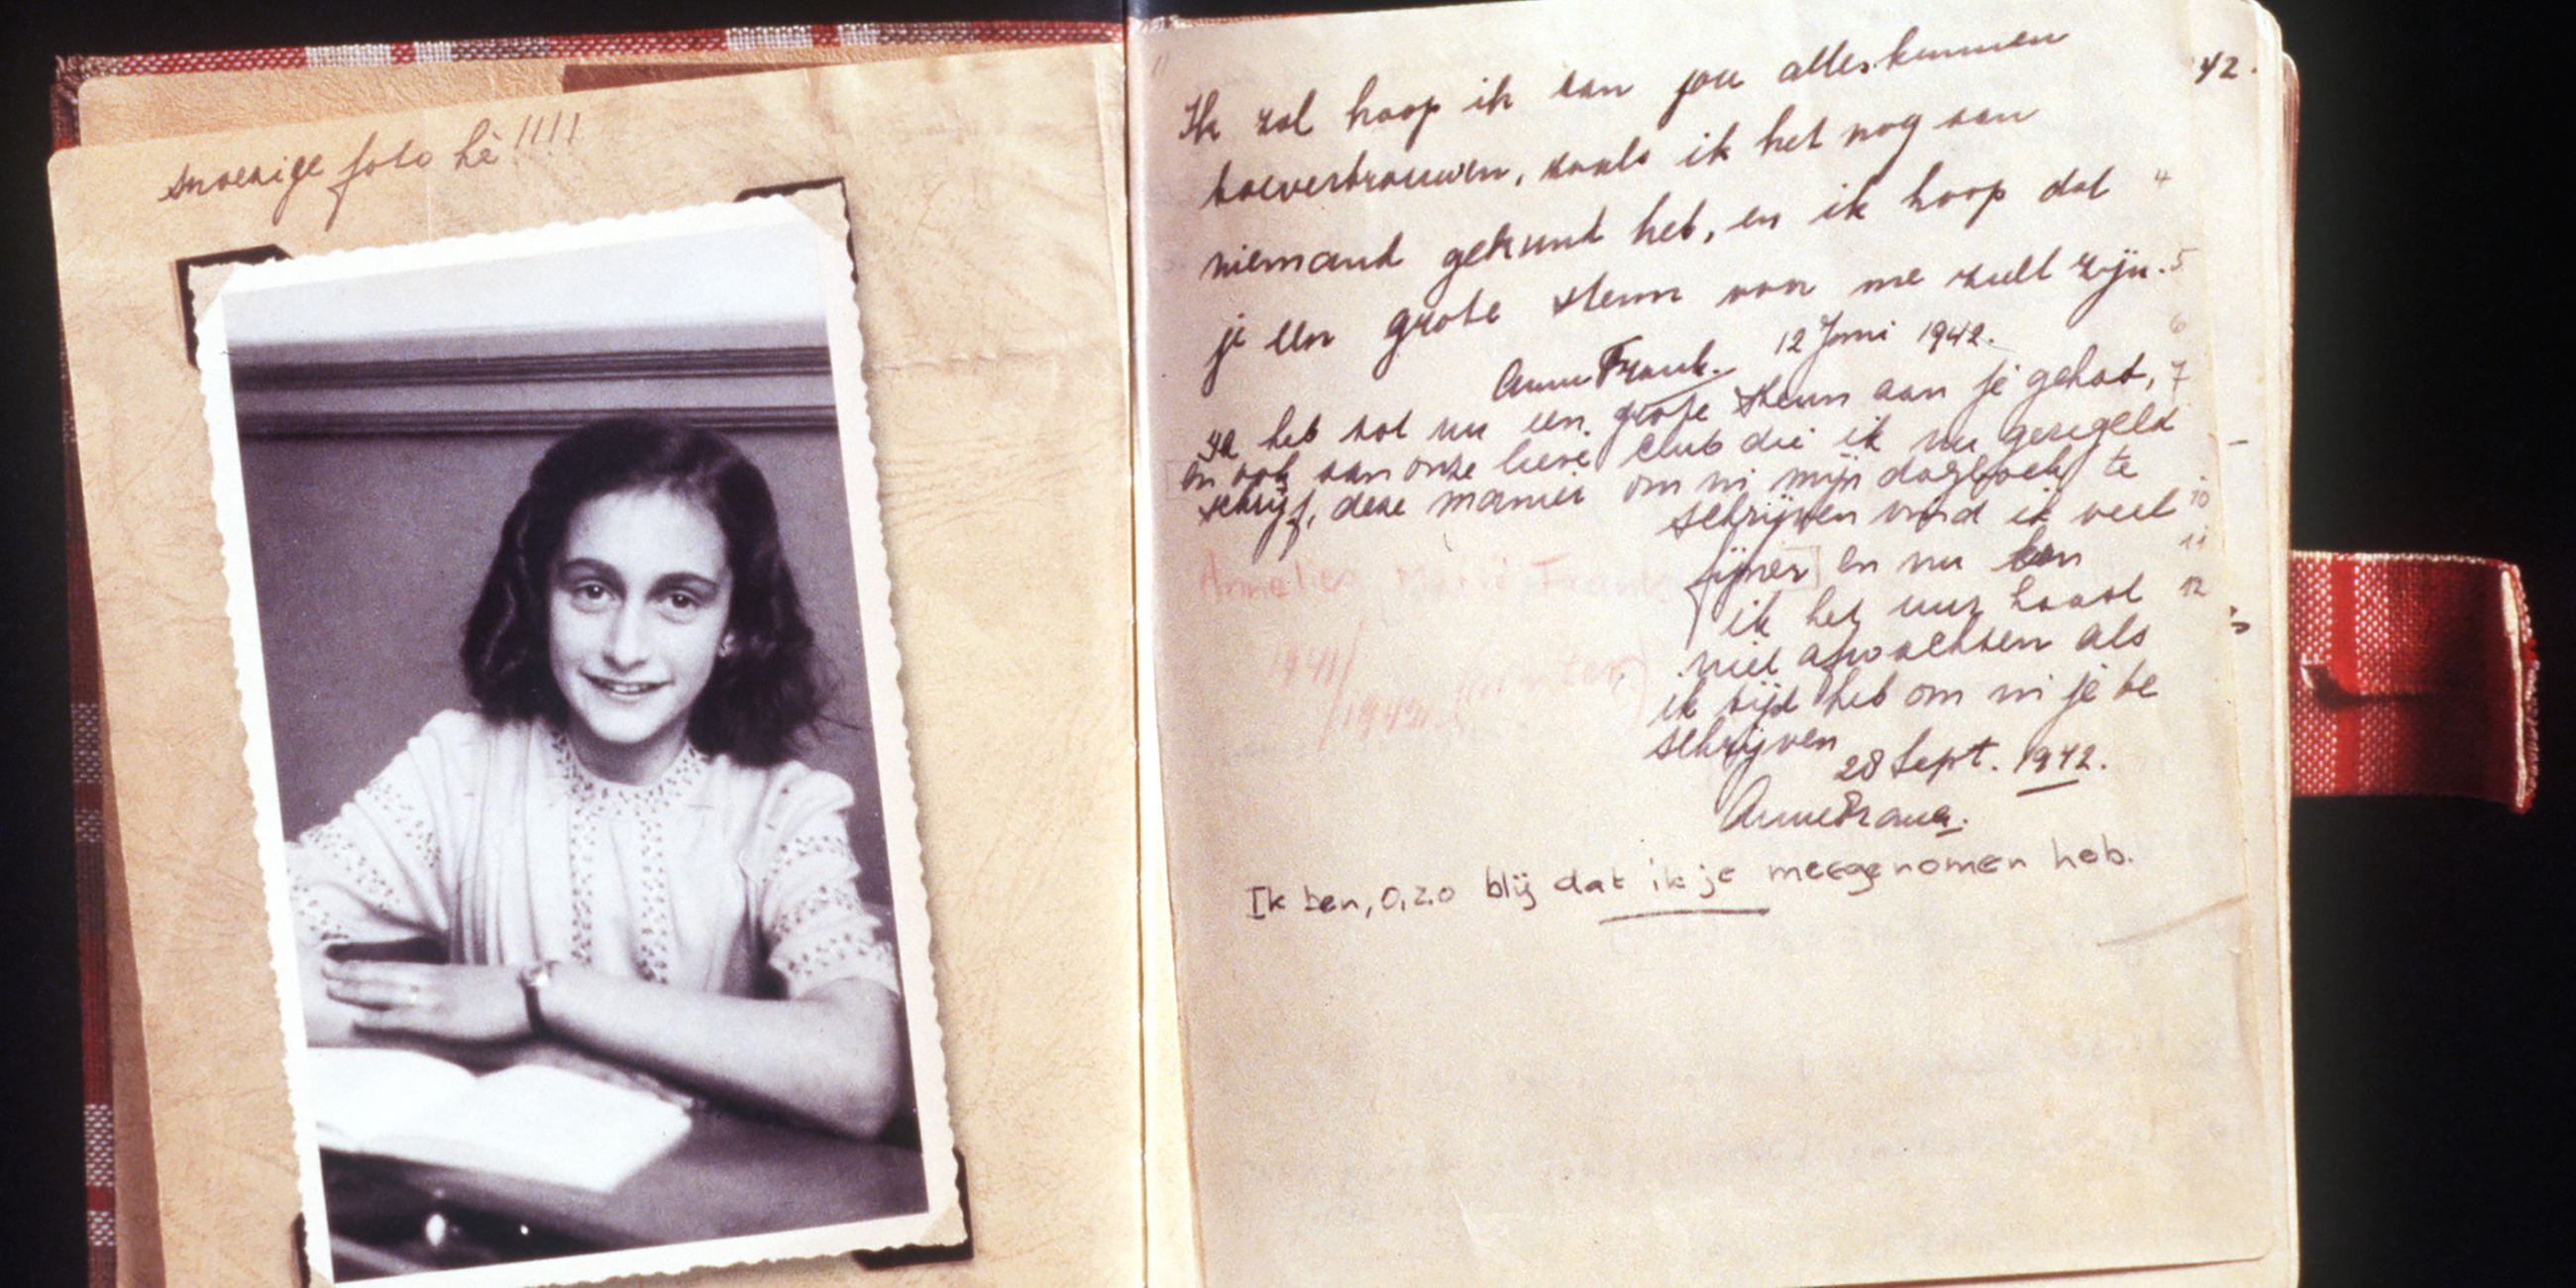 snoezige foto hè!!!!
42.
Ik zal hoop ik aan jou alles kunnen
toevertrouwen, zoals ik het nog aan
niemand gekund heb, en ik hoop dat 4
je een grote steun van me zult zijn. 5
Anne Frank. 12 Juni 1942.
6
Ik heb tot nu een grote steun aan je gehad, 7
en ook aan onze lieve club die ik nu geregeld
schrijf, deze manier om in mijn dagboek te
schrijven vind ik veel 10
fijner en nu kan 11
ik het uur haast 12
niet afwachten als
ik tijd heb om in je te
schrijven
28 Sept. 1942.
Anne Frank.
Annelies Marie Frank
1941/
1942. (winter)
Ik ben, o, zo blij dat ik je meegenomen heb.